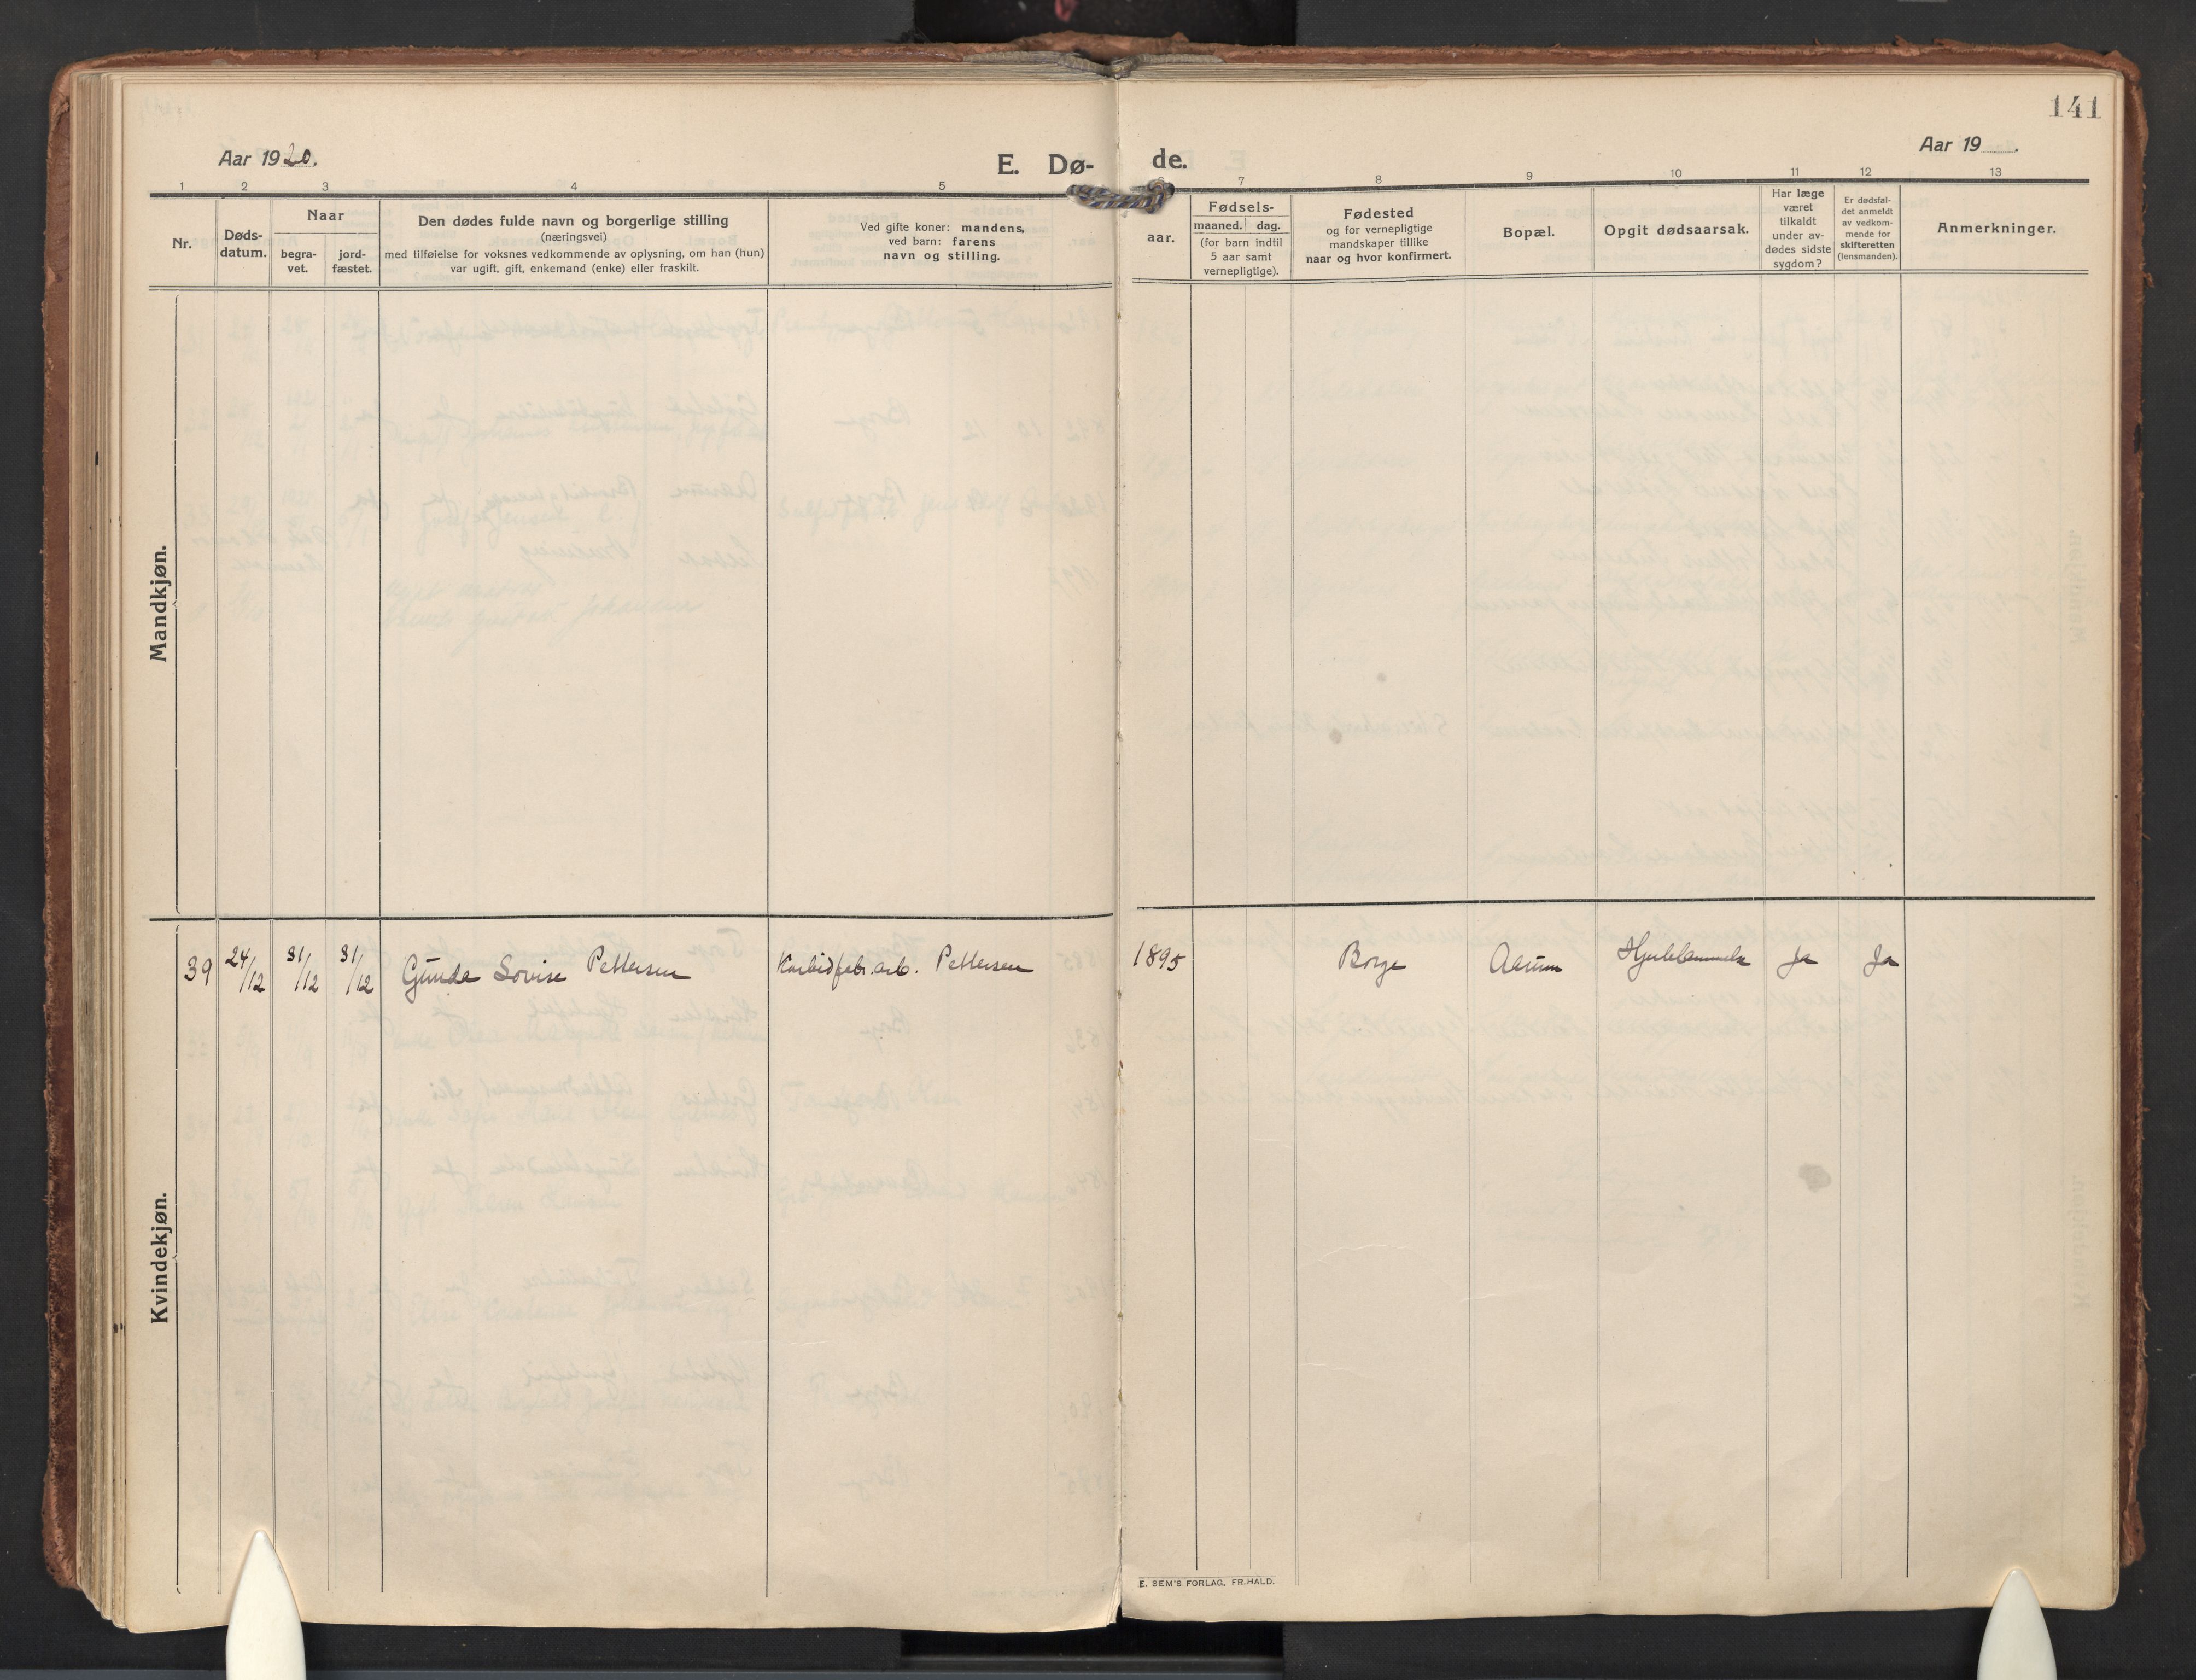 141
Aar 1920.
E. Dø-
de.
Aar 19 .
1 2 3 4 5 6 7 8 9 10 11 12 13
Nr.
Døds-
datum.
Naar
begra-
vet.
jord-
fæstet.
Den dødes fulde navn og borgerlige stilling
(næringsvei)
med tilføielse for voksnes vedkommende av oplysning, om han (hun)
var ugift, gift, enkemand (enke) eller fraskilt.
Ved gifte koner: mandens,
ved barn: farens
navn og stilling.
aar.
Fødsels-
maaned. dag.
(for barn indtil
5 aar samt
vernepligtige).
Fødested
og for vernepligtige
mandskaper tillike
naar og hvor konfirmert.
Bopæl.
Opgit dødsaarsak.
Har læge
været
tilkaldt
under av-
dødes sidste
sygdom?
Er dødsfal-
det anmeldt
av vedkom-
mende for
skifteretten
(lensmanden).
Anmerkninger.
Mandkjøn.
Kvindekjøn.
39 24/12 31/12 31/12 Gunda Lovise Pettersen Karbidfabr.arb. Pettersen 1895 Borge Aarum Hjertelammelse Ja Ja
E. SEM'S FORLAG, FR.HALD.